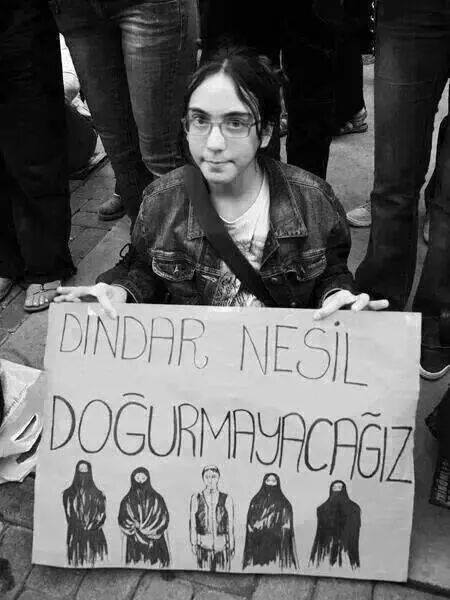 DINDAR NESİL
DOĞURMAYACAĞIZ